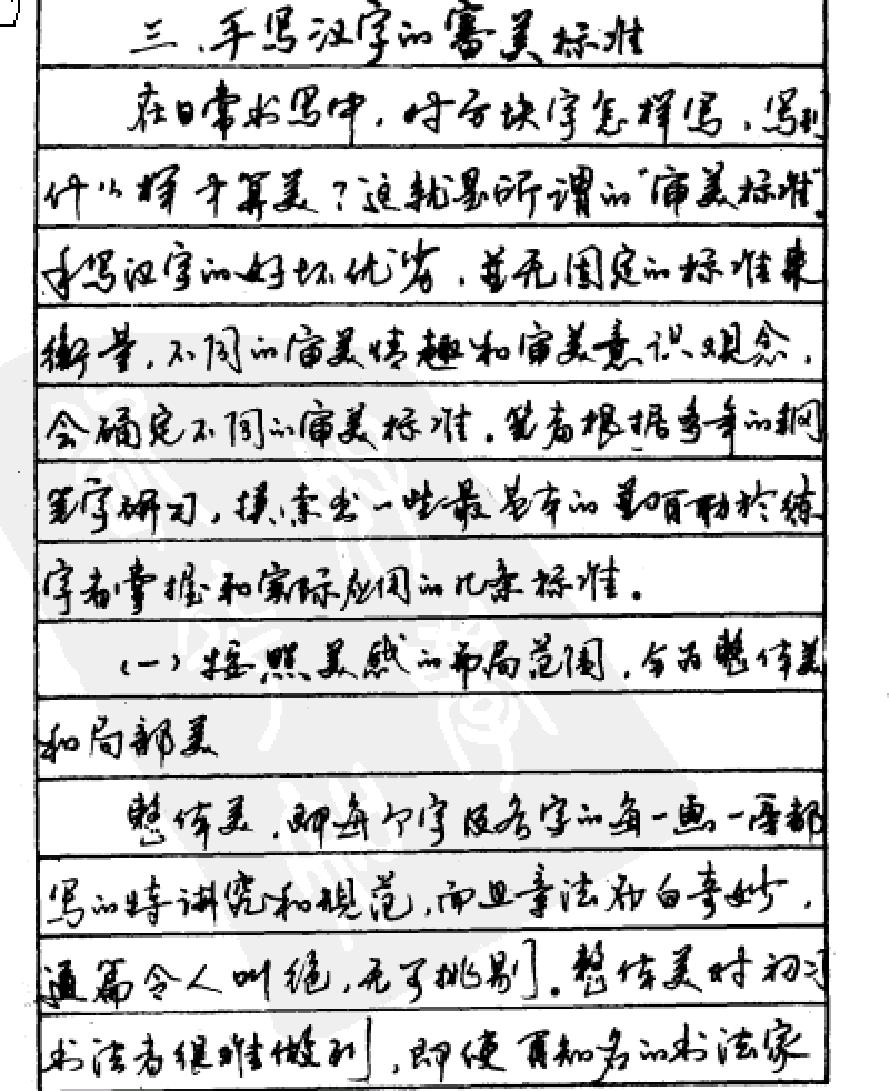 三、手写汉字的审美标准
在日常书写中，对方块字怎样写，写到
什么样才算美？这就是所谓的“审美标准”。
手写汉字的好坏优劣，并无固定的标准来
衡量，不同的审美情趣和审美意识观念，
会确定不同的审美标准。笔者根据多年的钢
笔字研习，摸索出一些最基本的都有助于练
字者掌握和实际应用的几条标准。
（一）按照美感的布局范围，分为整体美
和局部美
整体美，即每个字及各字的每一画一居都
写的特讲究和规范，而且章法布白奇妙，
通篇令人叫绝，无可挑剔。整体美对初习
书法者很难做到，即使有知名的书法家